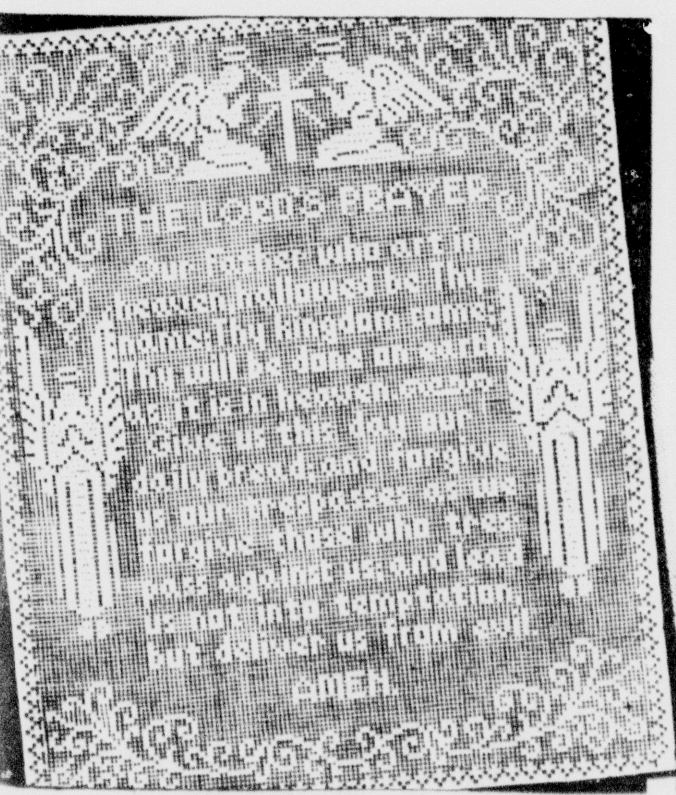 THE LORD'S PRAYER
Our Father who art in
heaven, hallowed be Thy
name. Thy kingdom come.
Thy will be done on earth
as it is in heaven.
Give us this day our
daily bread and forgive
us our trespasses as we
forgive those who tres
pass against us and lead
us not into temptation
but deliver us from evil
AMEN.